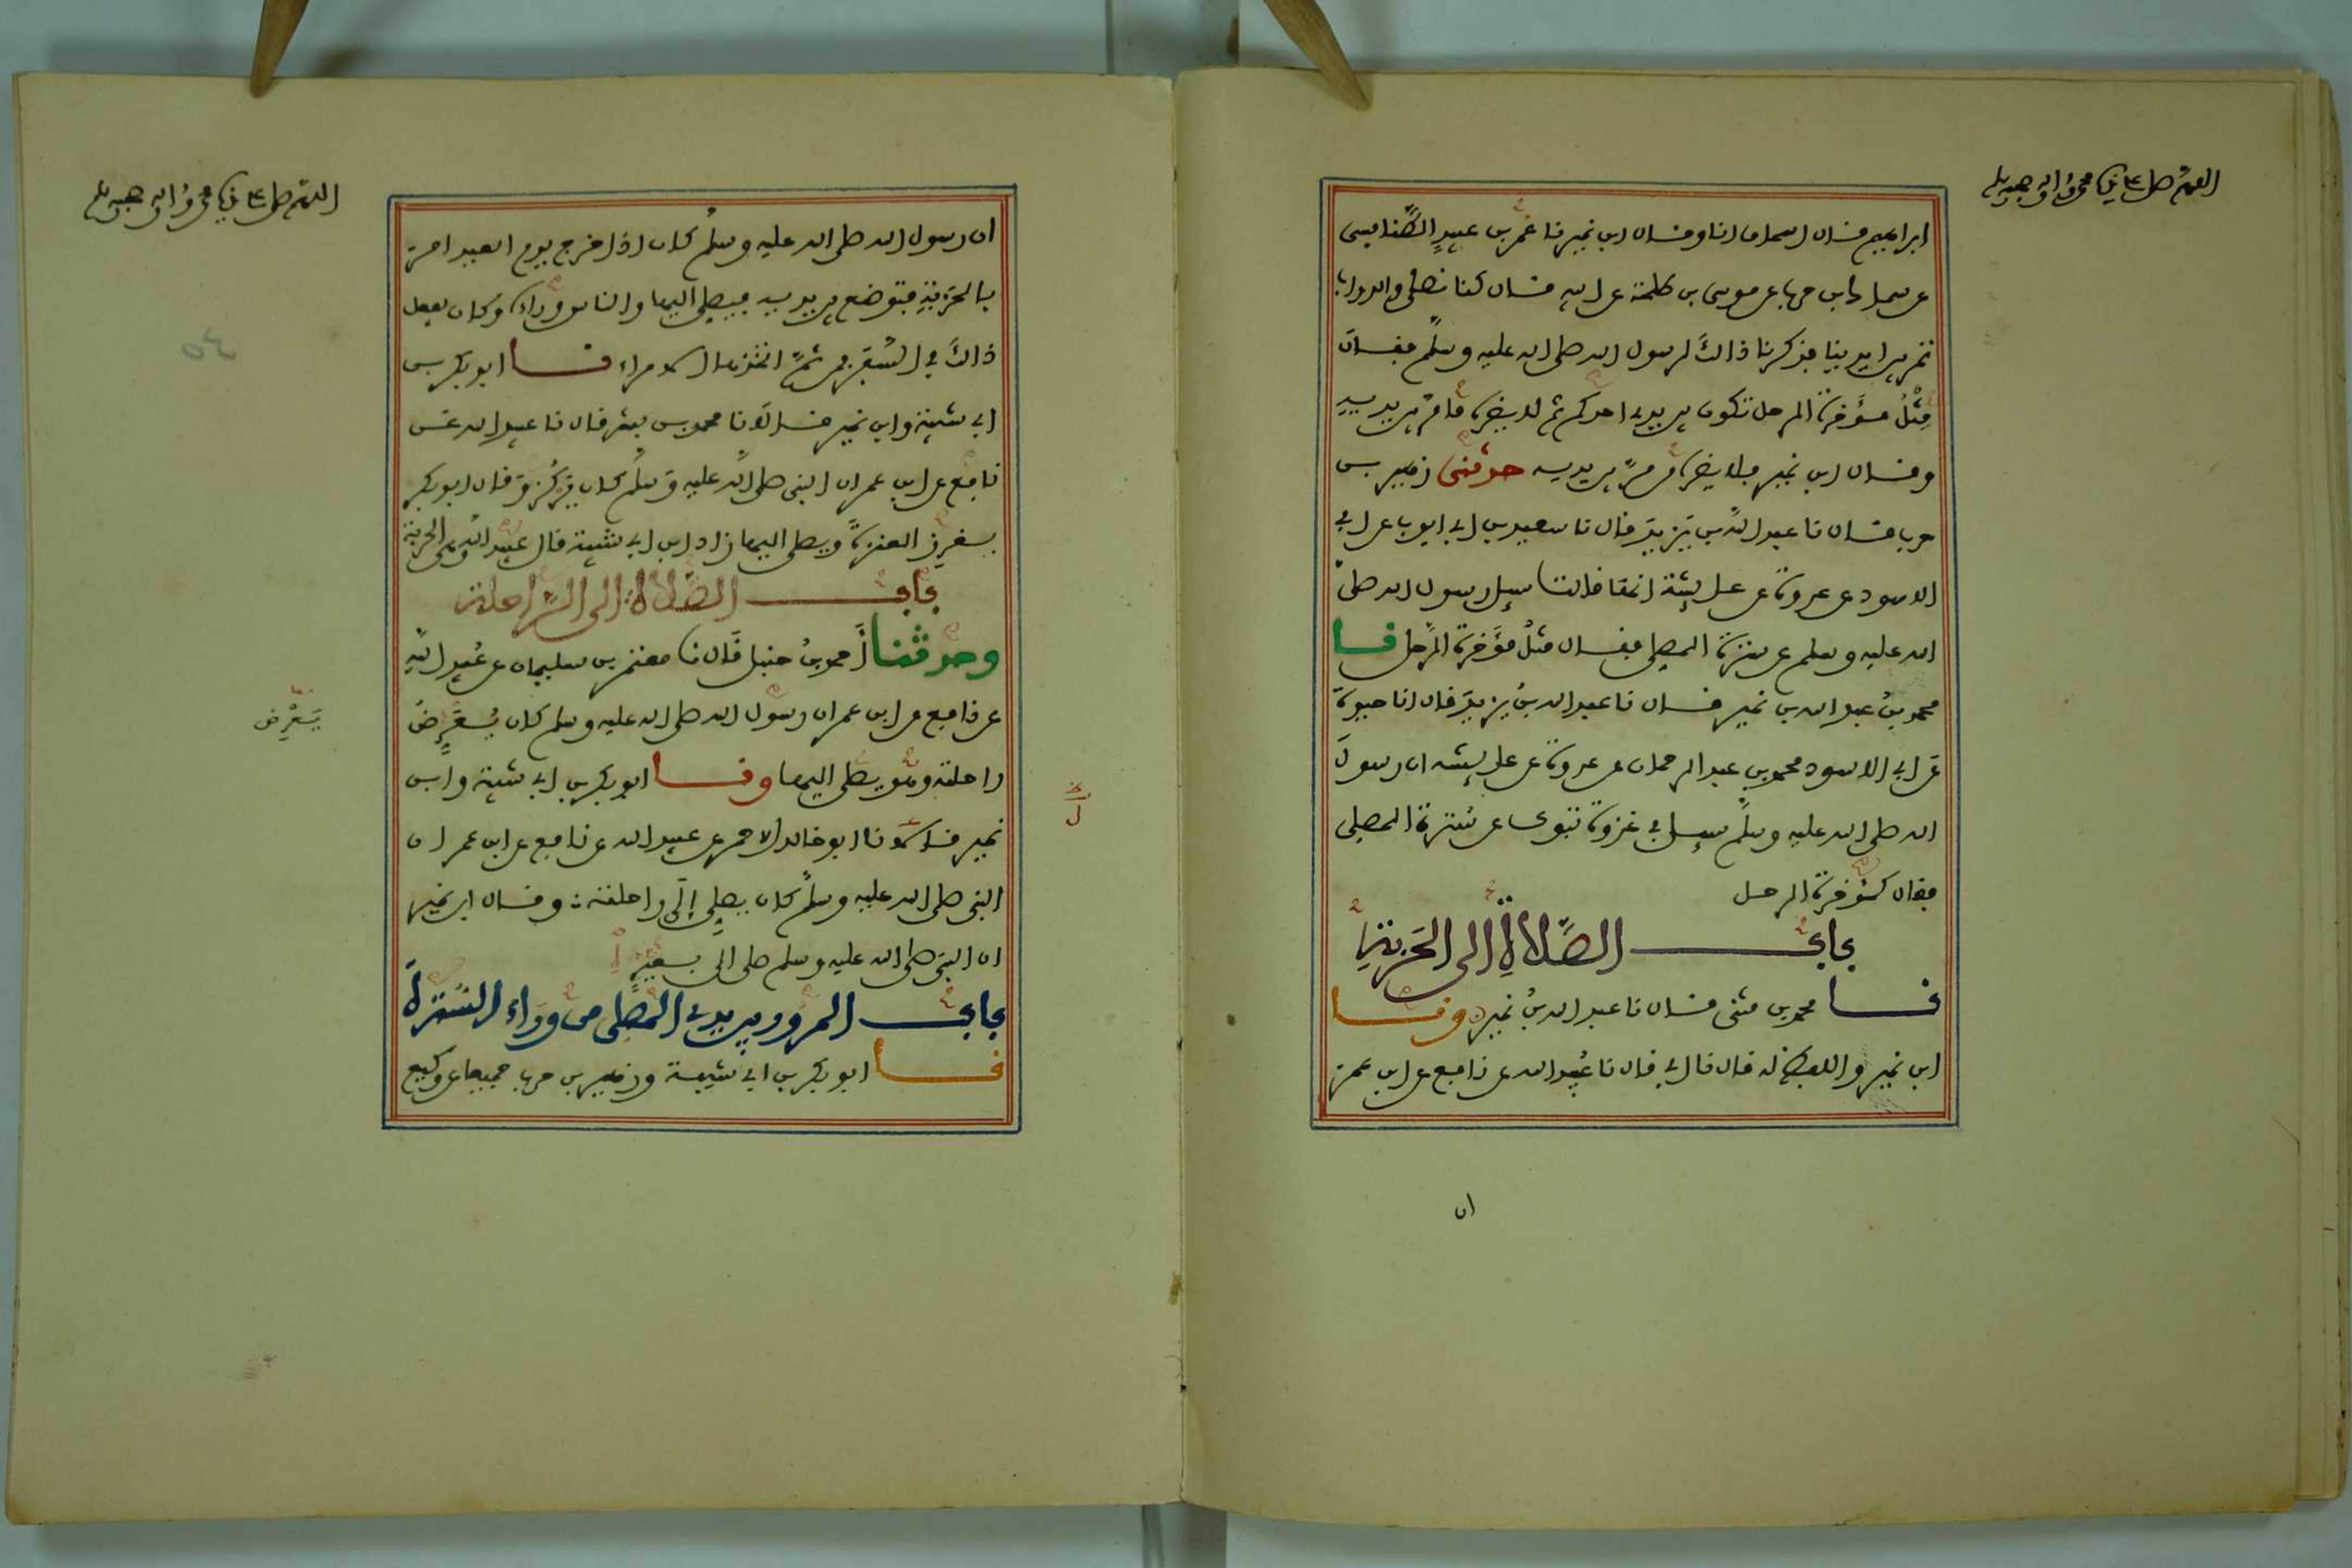 اللهم صل على نبينا محمد واله وصحبه وسلم
ابراهيم قال اسحاق انا وقال ابن نمير نا عمر بن عبيد الطنافسي
عن سماك ابن حرب عن موسى بن طلحة عن ابيه قال كنا نصلي والدواب
تمر بين ايدينا فذكرنا ذالك لرسول الله صلى الله عليه وسلم فقال
مثل مؤخرة الرحل تكون بين يدي احدكم ثم لا يضره ما مر بين يديه
وقال ابن نمير فلا يضره من مر بين يديه حدثني زهير بن
حرب قال نا عبد الله بن يزيد قال نا سعيد بن ابي ايوب عن ابي
الاسود عن عروة عن عايشة انها قالت سيل رسول الله صلى
الله عليه وسلم عن سترة المصلي فقال مثل مؤخرة الرحل نا
محمد بن عبد الله بن نمير قال نا عبد الله بن يزيد قال انا حيوة
عن ابي الاسود محمد بن عبد الرحمان عن عروة عن عايشة ان رسول
الله صلى الله عليه وسلم سيل في غزوة تبوك عن سترة المصلي
فقال كمؤخرة الرحل
باب الصلاة الى الحربة
نا محمد بن مثنى قال نا عبد الله بن نمير ونا
ابن نمير واللفظ له قال نا ابي قال نا عبيد الله عن نافع عن ابن عمر
ان
اللهم صل على نبينا محمد واله وصحبه وسلم
ان رسول الله صلى الله عليه وسلم كان اذا خرج يوم العيد امر
بالحربة فتوضع بين يديه فيصلي اليها والناس وراءه وكان يفعل
ذالك في السفر فمن ثم اتخذها الامراء نا ابو بكر بن
ابي شيبة وابن نمير قالا نا محمد بن بشر قال نا عبيد الله عن
نافع عن ابن عمر ان النبي صلى الله عليه وسلم كان يركز وقال ابو بكر
يغرز العنزة ويصلي اليها زاد ابن ابي شيبة قال عبيد الله وهي الحربة
باب الصلاة الى الراحلة
وحدثنا احمد بن حنبل قال نا معتمر بن سليمان عن عبيد الله
عن نافع عن ابن عمر ان رسول الله صلى الله عليه وسلم كان يعرض
يعرض
راحلته وهو يصلي اليها ونا ابو بكر بن ابي شيبة وابن
نمير قالا نا ابو خالد الاحمر عن عبيد الله عن نافع عن ابن عمر ان
النبي صلى الله عليه وسلم كان يصلي الى راحلته وقال ابن نمير
ان النبي صلى الله عليه وسلم صلى الى بعير
باب المرور بين يدي المصلي من وراء السترة
نا ابو بكر بن ابي شيبة وزهير بن حرب جميعا عن وكيع